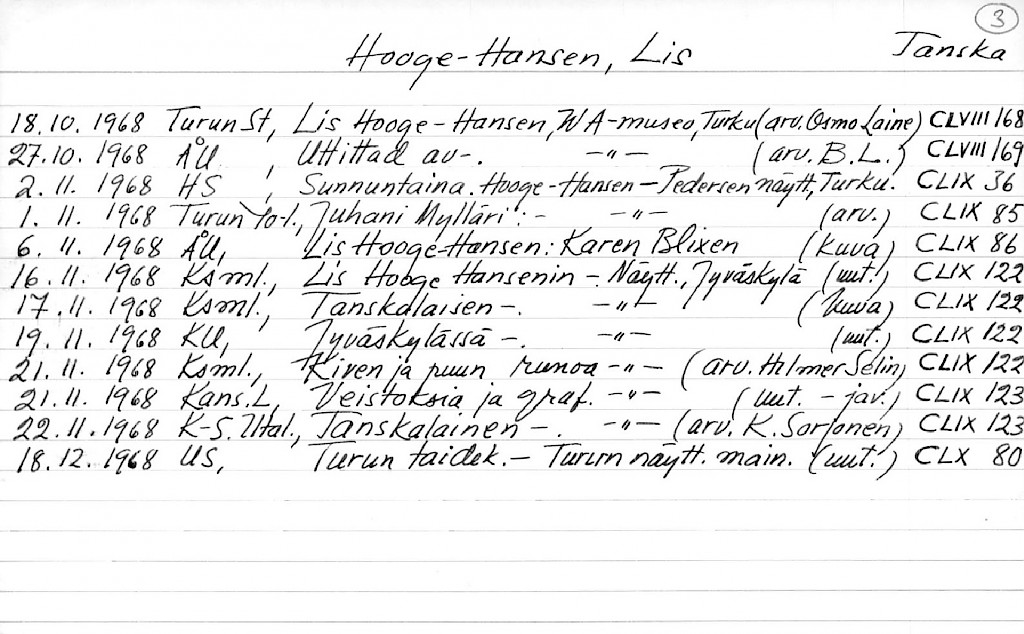 3
Hooge-Hansen, Lis Tanska
18.10. 1968 Turun St, Lis Hooge-Hansen, WA-museo, Turku (arv. Osmo Laine) CLVIII 168
27.10. 1968 ÅU, Utittad av-. -"- (arv. B.L.) CLVIII 169
2. 11. 1968 HS, Sunnuntaina. Hooge-Hansen-Pedersen näytt, Turku. CLIX 36
1. 11. 1968 Turun Yo-l., Juhani Mylläri:- -"- (arv.) CLIX 85
6. 11. 1968 ÅU, Lis Hooge-Hansen: Karen Blixen (kuva) CLIX 86
16. 11. 1968 Ksml., Lis Hooge Hansenin - Näytt., Jyväskylä (uut.) CLIX 122
17. 11. 1968 Ksml., Tanskalaisen -. -"- (kuva) CLIX 122
19. 11. 1968 KU, Jyväskylässä -. -"- (uut.) CLIX 122
21. 11. 1968 Ksml., Kiven ja puun runoa -"- (arv. Hilmer Selin) CLIX 122
21. 11. 1968 Kans.L, Veistoksia ja graf. -"- (uut. - jav.) CLIX 123
22. 11. 1968 K-S. Iltal., Tanskalainen -. -"- (arv. K. Sorjonen) CLIX 123
18. 12. 1968 US, Turun taidek. - Turun näytt. main. (uut.) CLX 80